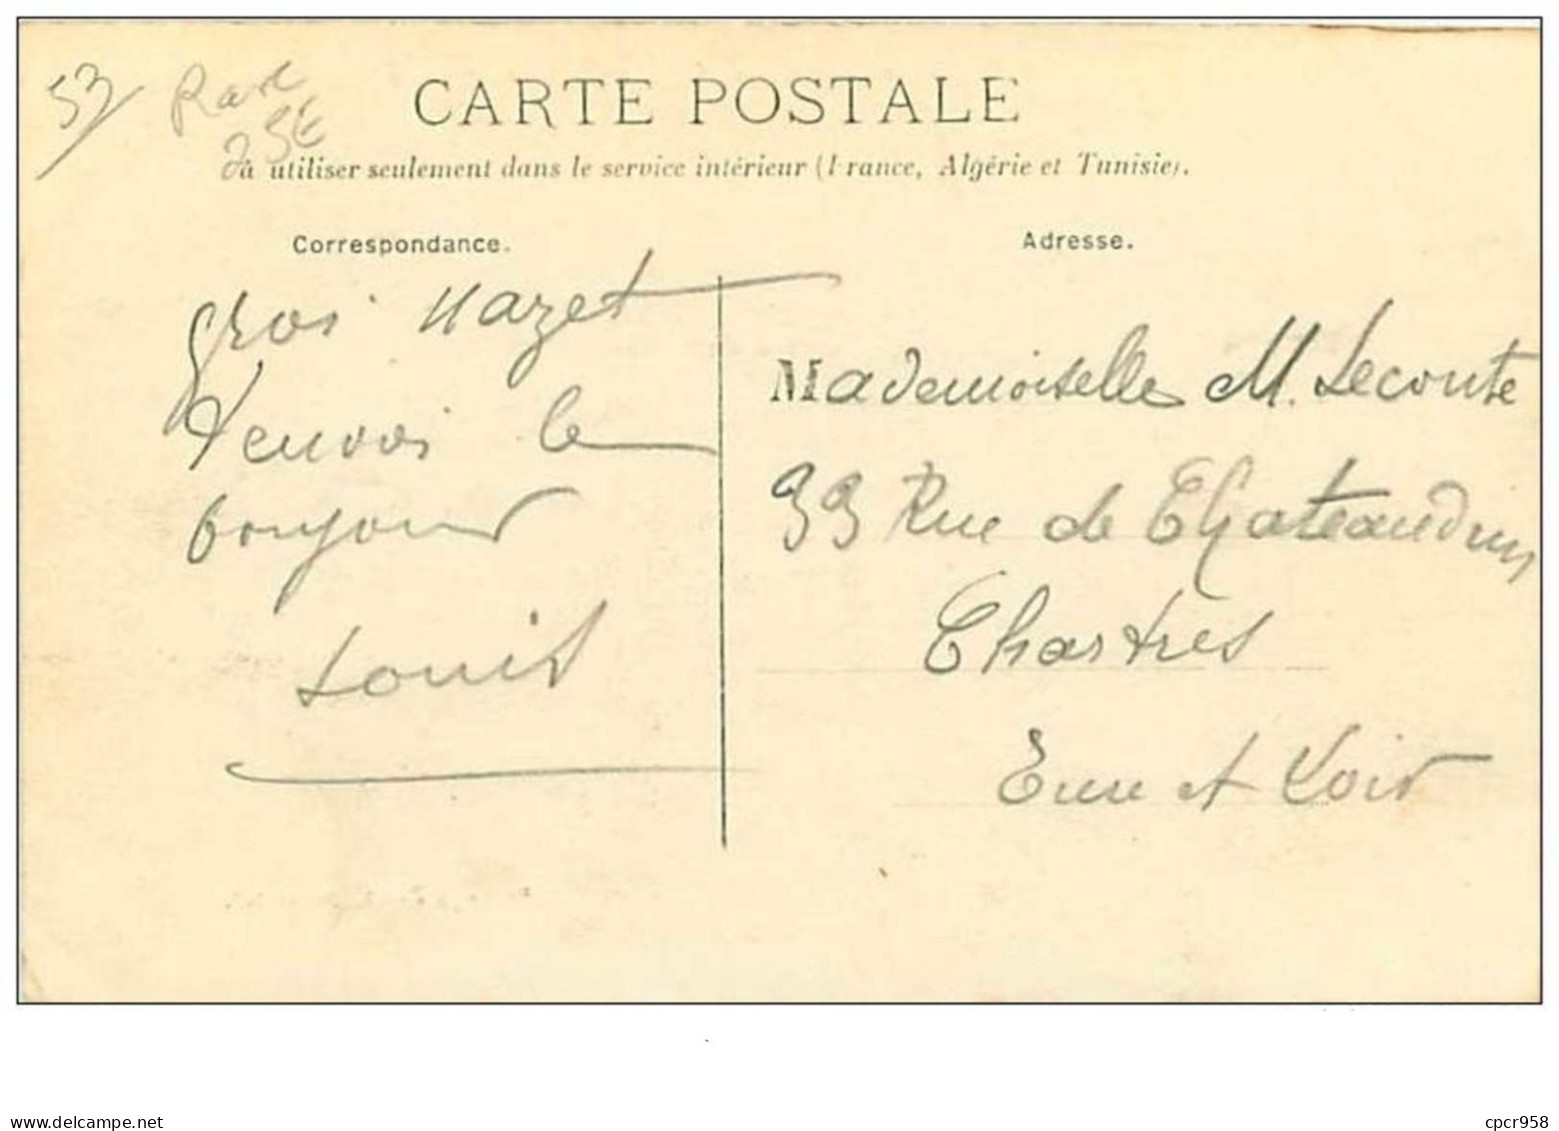 53
Rare
25E
CARTE POSTALE
à utiliser seulement dans le service intérieur (France, Algérie et Tunisie).
Correspondance.
Adresse.
gros nazet
t'envoi le
bonjour
Louis
Mademoiselle M. Leconte
33 Rue de Chateaudun
Chartres
Eure et Loir
delcampe.net
cpcr958